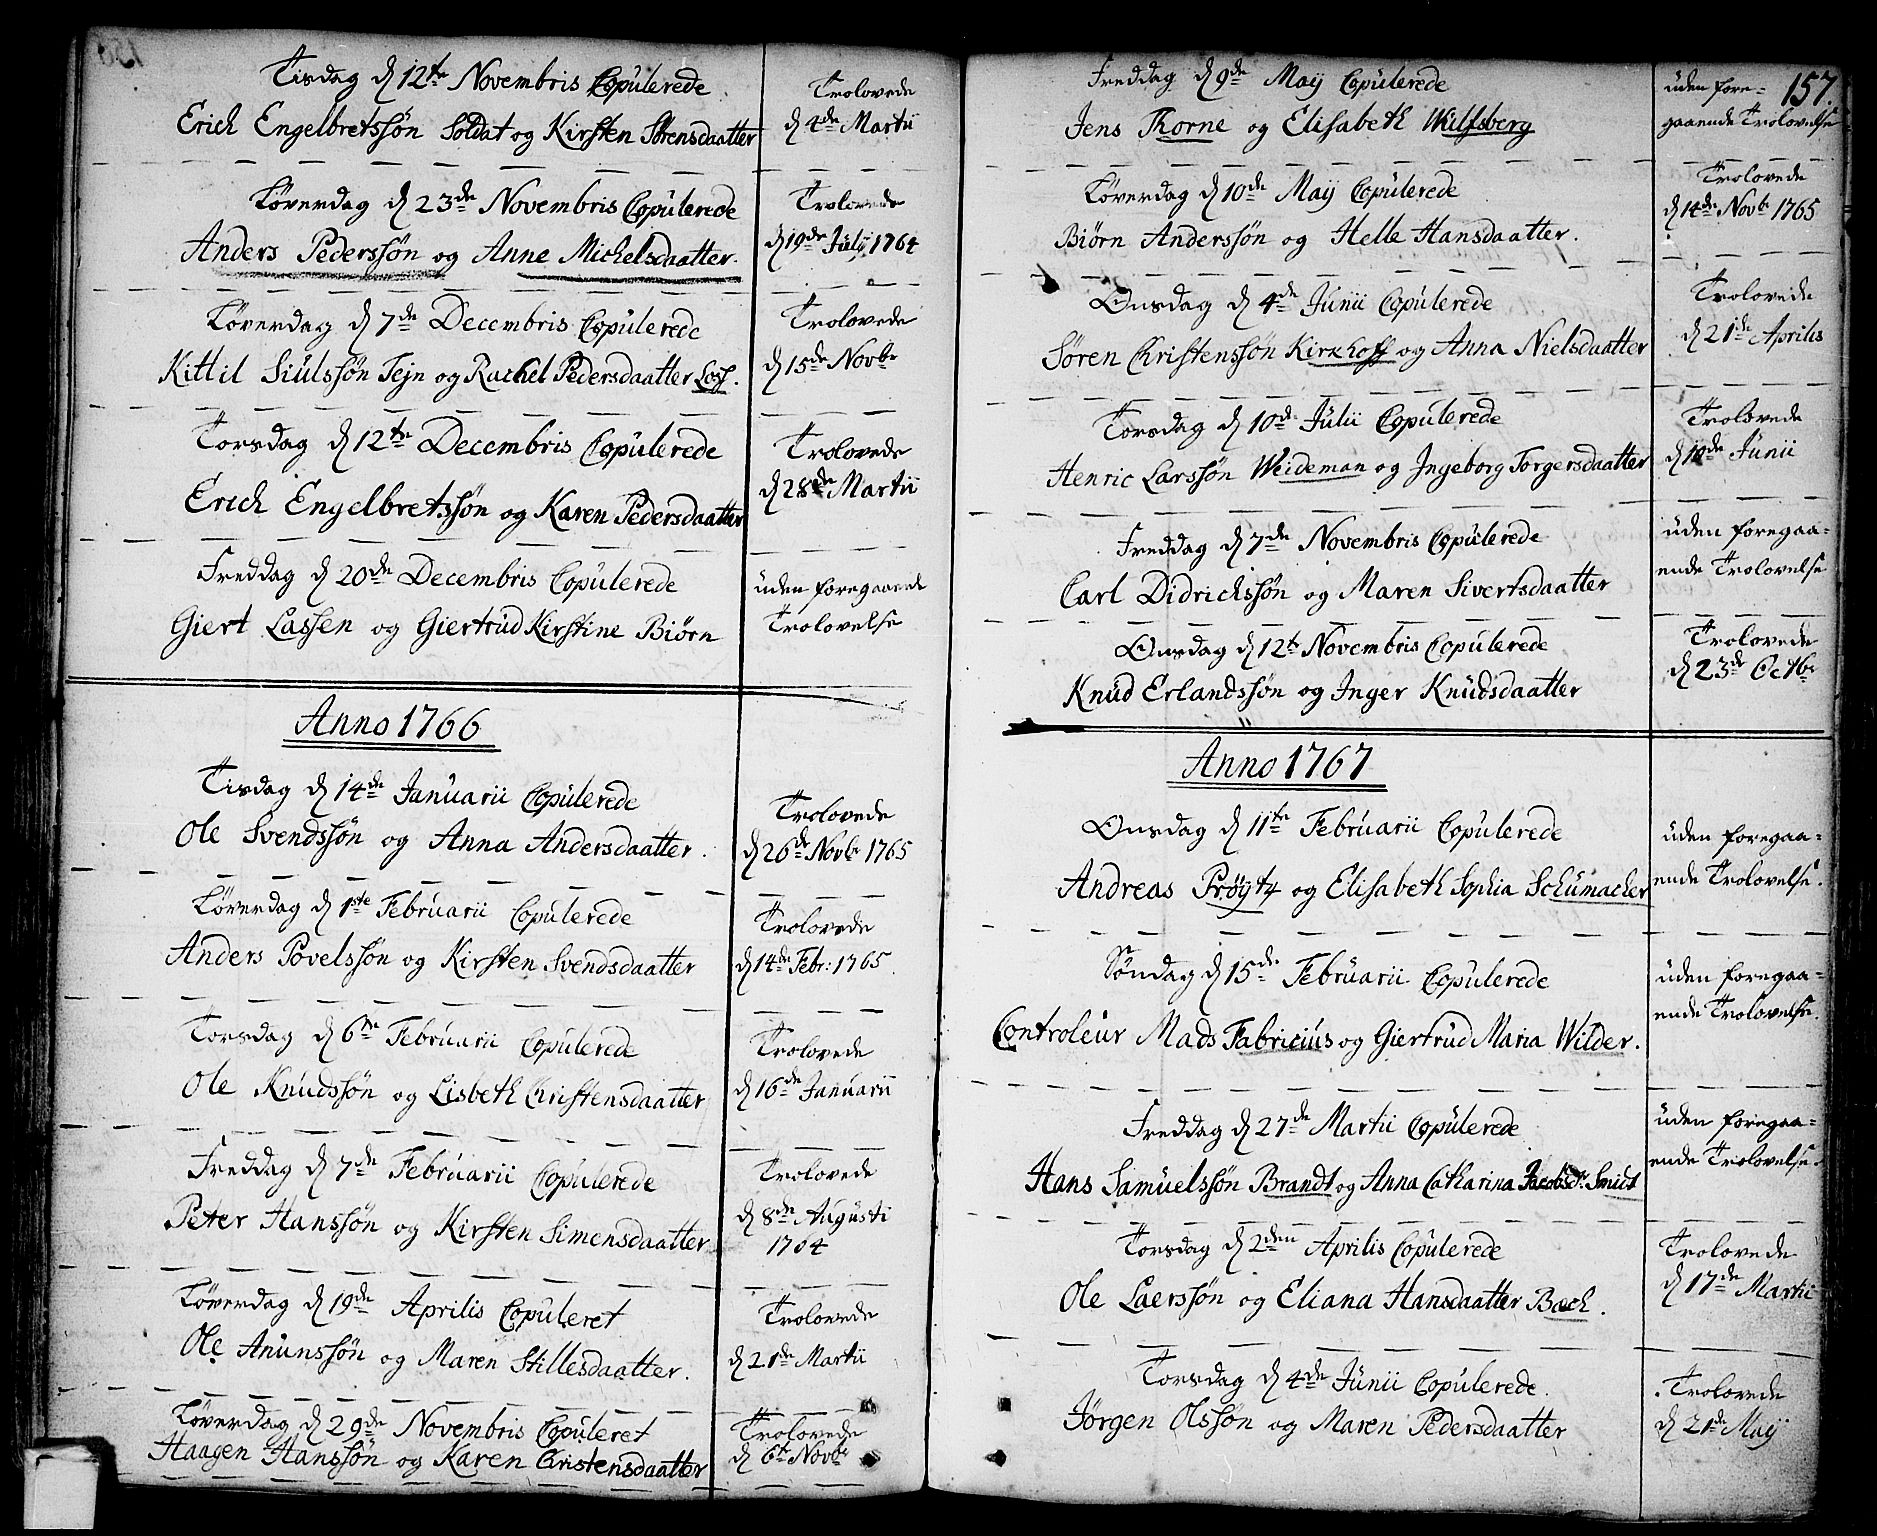 Tisdag d 12te Novembris Copulerede
Erich Engelbretssøn Soldat og Kirsten Sørensdaatter
Trolovede
d 4de Martii
Løverdag d 23de Novembris Copulerede
Anders Pederssøn og Anne Michelsdaatter.
Trolovede
d 19de Julij 1764
Løverdag d 7de Decembris Copulerede
Kittil Siulssøn Tejn og Rachel Pedersdaatter
Trolovede
d 15de Novbr
Torsdag d 12te Decembris Copulerede
Erich Engelbretssøn og Karen Pedersdaatter
Trolovede
d 28de Martii
Freddag d 20de Decembris Copulerede
Giert Lassen og Giertrud Kirstine Biørn
uden foregaaende
Trolovelse
Anno 1766
Tisdag d 14de Januarii Copulerede
Ole Svendssøn og Anna Andersdaatter.
Trolovede
d 26de Novbr 1765
Løverdag d 1ste Februarii Copulerede
Anders Povelssøn og Kirsten Svendsdaatter
Trolovede
d 14de Febr: 1765.
Torsdag d 6te Februarii Copulerede
Ole Knudssøn og Lisbeth Christensdaatter
Trolovede
d 16de Januarii
Freddag d 7de Februarii Copulerede
Peter Hanssøn og Kirsten Simensdaatter
Trolovede
d 8de Augusti
1764
Løverdag d 19de Aprilis Copuleret
Ole Anunssøn og Maren Stillesdaatter.
Trolovede
d 21de Martii
Løverdag d 29de Novembris Copuleret
Haagen Hanssøn og Karen Christensdaatter
Trolovede
d 6te Novbr
157.
Freddag d 9de Maij Copulerede
Jens Thorne og Elisabeth Wilfsberg
uden fore-
gaaende Trolovelse
Løverdag d 10de Maij Copulerede
Biørn Anderssøn og Helle Hansdaatter.
Trolovede
d 14de Novbr 1765
Onsdag d 4de Junii Copulerede
Søren Christenssøn Kirkhoff og Anna Nielsdaatter
Trolovede
d 21de Aprilis
Torsdag d 10de Julii Copulerede
Henric Larssøn Weideman og Ingeborg Torgersdaatter
Trolovede
d 10de Junii
Freddag d 7de Novembris Copulerede
Carl Didrichssøn og Maren Sivertsdaatter
uden foregaa-
ende Trolovelse
Onsdag d 12te Novembris Copulerede
Knud Erlandssøn og Inger Knudsdaatter
Trolovede
d 23de Octbr
Anno 1767
Onsdag d 11te Februarii Copulerede
Andreas Prøytz og Elisabeth Sophia Schumacher
uden foregaa-
ende Trolovelse.
Søndag d 15de Februarii Copulerede
Controleur Mads Fabricius og Giertrud Maria Wilder.
uden foregaa-
ende Trolovelse.
Freddag d 27de Martii Copulerede
Hans Samuelssøn Brandt og Anna Catharina Jacobsdr. Smidt
uden foregaa-
ende Trolovelse.
Torsdag d 2den Aprilis Copulerede
Ole Laerssøn og Eliana Hansdaatter Bach.
Trolovede
d 17de Martii
Torsdag d 4de Junii Copulerede.
Jørgen Olssøn og Maren Pedersdaatter
Trolovede
d 21de Maij